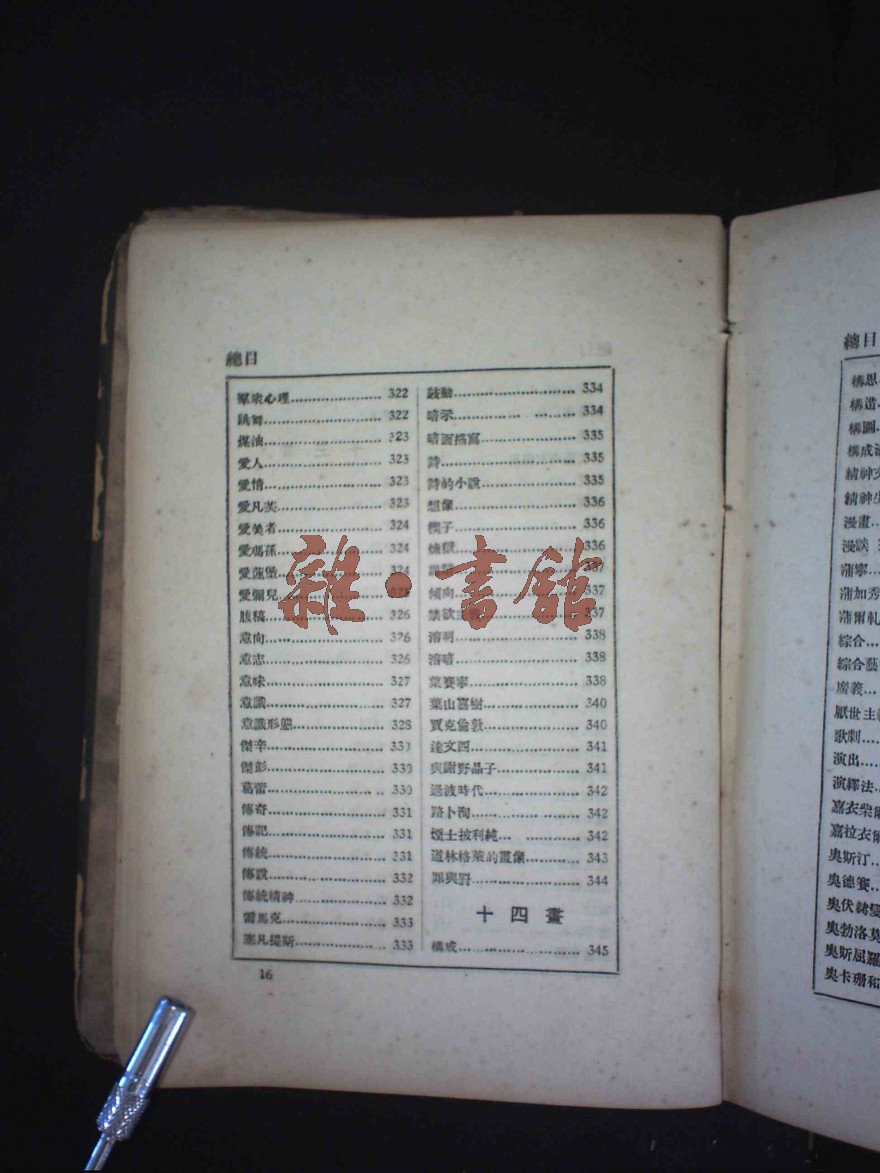 總目
羣衆心理 322
跳舞 322
煤油 323
愛人 323
愛情 323
愛凡茨 323
愛美者 324
愛瑪孫 324
愛蓮堡 324
愛彌兒
腹稿 326
意向 326
意志 326
意味 327
意識 327
意識形態 328
傑辛 330
傑彭 330
葛雷 330
傳奇 331
傳記 331
傳統 331
傳說 332
傳統精神 332
雷馬克 333
塞凡提斯 333
鼓動 334
暗示 334
暗面描寫 335
詩 335
詩的小說 335
想像 336
楔子 336
煉獄 336
337
傾向 337
禁欲主義 337
溶明 338
溶暗 338
葉賽寧 338
葉山嘉樹 340
賈克倫敦 340
達文西 341
與謝野晶子 341
過渡時代 342
路卜洵 342
煙士披利純 342
道林格萊的畫像 343
罪與罰 344
十四畫
構成 345
16
雜·書館
總目
構思
構造
構圖
構成
精神
精神生
漫畫
漫談
蒲寧
蒲加秀
蒲爾軋
綜合
綜合藝
廣義
厭世主義
歌劇
演出
演繹法
嘉衣柴爾
嘉拉衣爾
奧斯汀
奧德賽
奧伏赫變
奧勃洛莫
奧斯屈羅
奧卡珊和